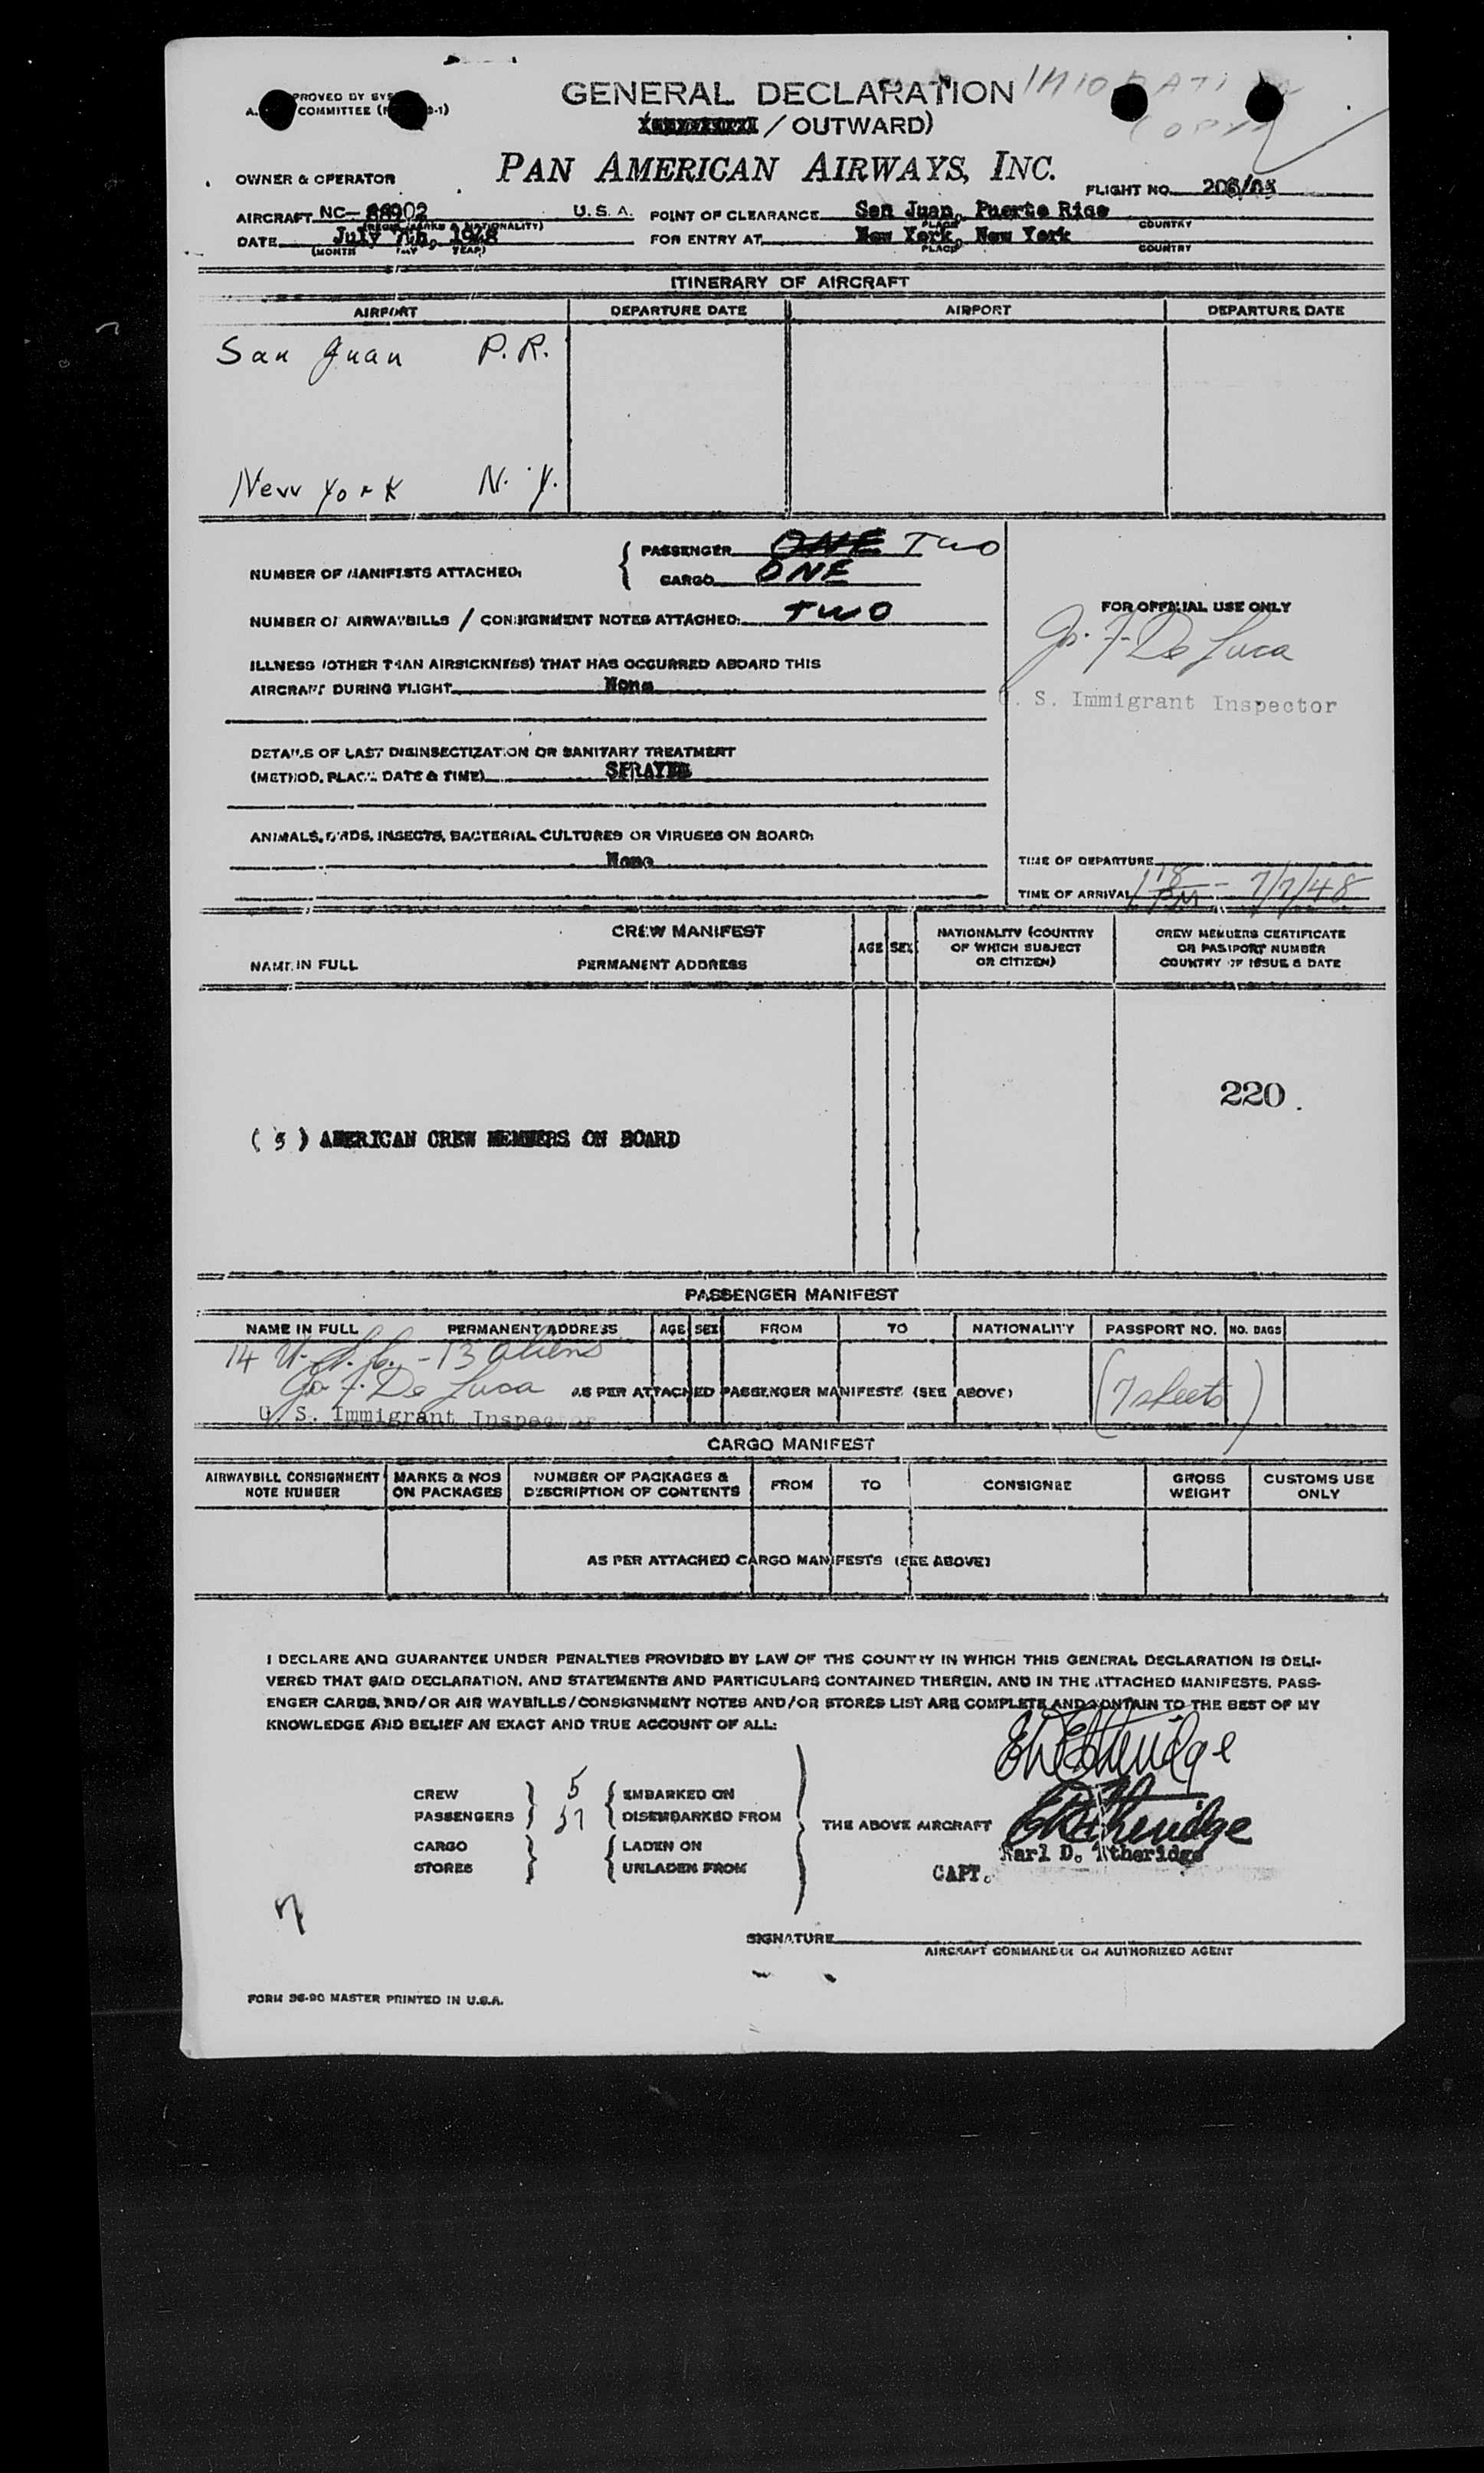 GENERAL DECLARATION
/ OUTWARD)
COPY
PROVED BY
COMMITTEE
PAN AMERICAN AIRWAYS, INC.
OWNER & OPERATOR
FLIGHT NO.
AIRCRAFT NC- U. S. A. POINT OF CLEARANCE San Juan, Puerto Rico
PLACE COUNTRY
DATE July 7th, 1948 FOR ENTRY AT New York, New York
(MONTH DAY YEAR) PLACE COUNTRY
ITINERARY OF AIRCRAFT
AIRPORT DEPARTURE DATE AIRPORT DEPARTURE DATE
San Juan P.R.
New York N. Y.
NUMBER OF MANIFESTS ATTACHED: { PASSENGER ONE Two
CARGO ONE
NUMBER OF AIRWAYBILLS / CONSIGNMENT NOTES ATTACHED: TWO
FOR OFFICIAL USE ONLY
De Luca
U. S. Immigrant Inspector
ILLNESS (OTHER THAN AIRSICKNESS) THAT HAS OCCURRED ABOARD THIS
AIRCRAFT DURING FLIGHT None
DETAILS OF LAST DISINSECTIZATION OR SANITARY TREATMENT
(METHOD, PLACE, DATE & TIME) SPRAYED
ANIMALS, BIRDS, INSECTS, BACTERIAL CULTURES OR VIRUSES ON BOARD:
None
TIME OF DEPARTURE
TIME OF ARRIVAL 1 18 PM - 7/7/48
CREW MANIFEST
NAME IN FULL PERMANENT ADDRESS AGE SEX NATIONALITY (COUNTRY OF WHICH SUBJECT OR CITIZEN) CREW MEMBERS CERTIFICATE OR PASSPORT NUMBER COUNTRY OF ISSUE & DATE
220
( 5 ) AMERICAN CREW MEMBERS ON BOARD
PASSENGER MANIFEST
NAME IN FULL PERMANENT ADDRESS AGE SEX FROM TO NATIONALITY PASSPORT NO. NO. BAGS
14 U. S. C. - 13 aliens
De Luca AS PER ATTACHED PASSENGER MANIFESTS (SEE ABOVE) (7 sheets)
U. S. Immigrant Inspector
CARGO MANIFEST
AIRWAYBILL CONSIGNMENT NOTE NUMBER MARKS & NOS ON PACKAGES NUMBER OF PACKAGES & DESCRIPTION OF CONTENTS FROM TO CONSIGNEE GROSS WEIGHT CUSTOMS USE ONLY
AS PER ATTACHED CARGO MANIFESTS (SEE ABOVE)
I DECLARE AND GUARANTEE UNDER PENALTIES PROVIDED BY LAW OF THE COUNTRY IN WHICH THIS GENERAL DECLARATION IS DELI-
VERED THAT SAID DECLARATION, AND STATEMENTS AND PARTICULARS CONTAINED THEREIN, AND IN THE ATTACHED MANIFESTS, PASS-
ENGER CARDS, AND/OR AIR WAYBILLS/CONSIGNMENT NOTES AND/OR STORES LIST ARE COMPLETE AND CONTAIN TO THE BEST OF MY
KNOWLEDGE AND BELIEF AN EXACT AND TRUE ACCOUNT OF ALL:
Etheridge
CREW } 5 { EMBARKED ON
PASSENGERS } { DISEMBARKED FROM
THE ABOVE AIRCRAFT
Etheridge
CARGO } { LADEN ON
STORES } { UNLADEN FROM
Karl D. Etheridge
CAPT.
SIGNATURE
AIRCRAFT COMMANDER OR AUTHORIZED AGENT
FORM 96-90 MASTER PRINTED IN U.S.A.